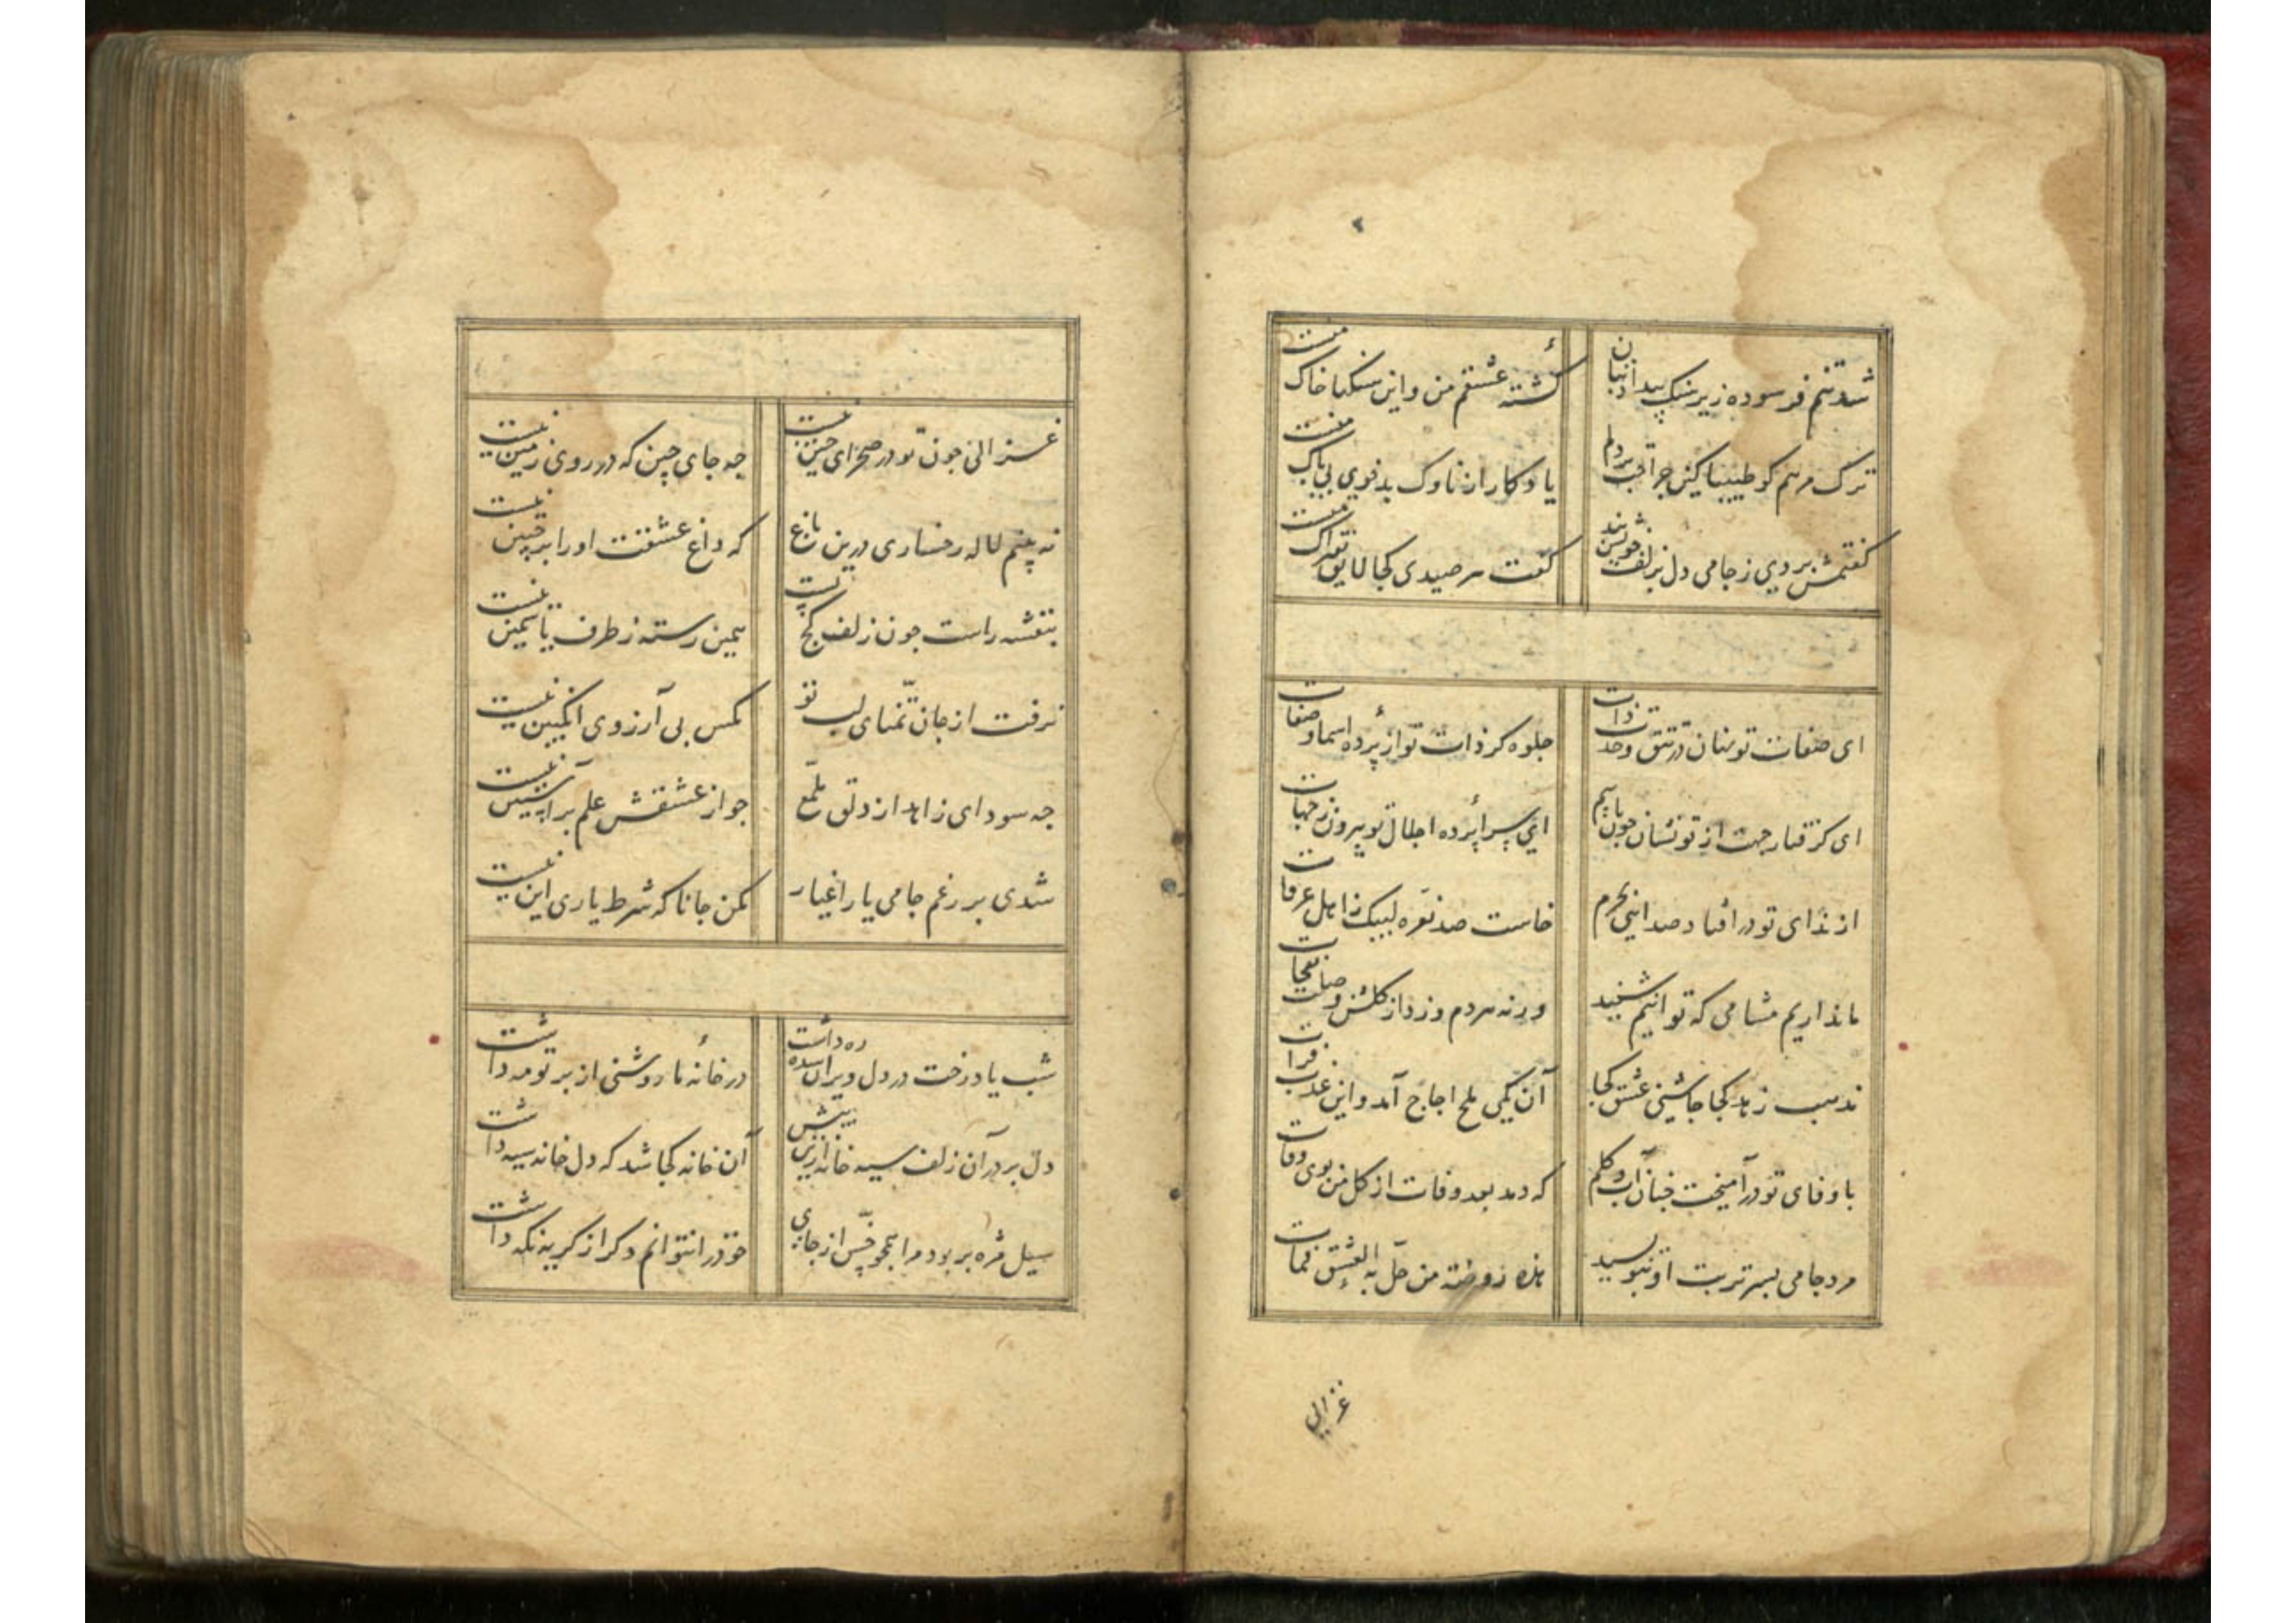 شد تنم فرسوده زیر سنک بیداد بتان
کشتهٔ عشقم من و این سنکها خاک منست
ترک مرهم کو طبیبا کین جراحت بر دلم
یادکار از ناوک بدخوی بی باک منست
کفتمش بردی ز جامی دل بزلف خویش بند
کفت هر صیدی کجا لایق فتراک منست
ای صفات تو نهان در تتق وحدت ذات
جلوه کر ذات تو از پردهٔ اسما و صفات
ای کرفتار جهت از تو نشان چون یابیم
ای سراپردهٔ اجلال تو بیرون ز جهات
از ندای تو در افتاد صدایی بحرم
خاست صد نعره لبیک ز اهل عرفات
ما نداریم مشامی که توانیم شنید
ورنه هر دم وزد از کلشن وصلت نفحات
مذهب زهد کجا چاشنی عشق کجا
آن یکی ملح اجاج آمد و این عذب فرات
با وفای تو در آمیخت چنان آب و کلم
که دمد بعد وفات از کل من بوی وفات
مرد جامی بسر تربت او بنویسید
هذه روضة من حلّ به العشق فمات
غزالی
غزالی چون تو در صحرای چین نیست
چه جای چین که در روی زمین نیست
نه بینم لاله رخساری درین باغ
که داغ عشقت او را بر جبین نیست
بنفشه راست چون زلف کجت
همین رسته ز طرف یاسمین نیست
نرفت از جان تمنّای لب تو
مکس بی آرزوی انکبین نیست
چه سود ای زاهد از دلق ملمّع
چو از عشقش علم بر آستین نیست
شدی بر رغم جامی یار اغیار
مکن جانا که شرط یاری این نیست
شب یاد رخت در دل ویران شده ره داشت
در خانهٔ ما روشنی از پرتو مه داشت
دل برد در آن زلف سیه خانه ازین پیش
آن خانه کجا شد که دل خانه سیه داشت
سیل مژه بربود مرا همچو خس از جای
خود را نتوانم دکر از کریه نکه داشت